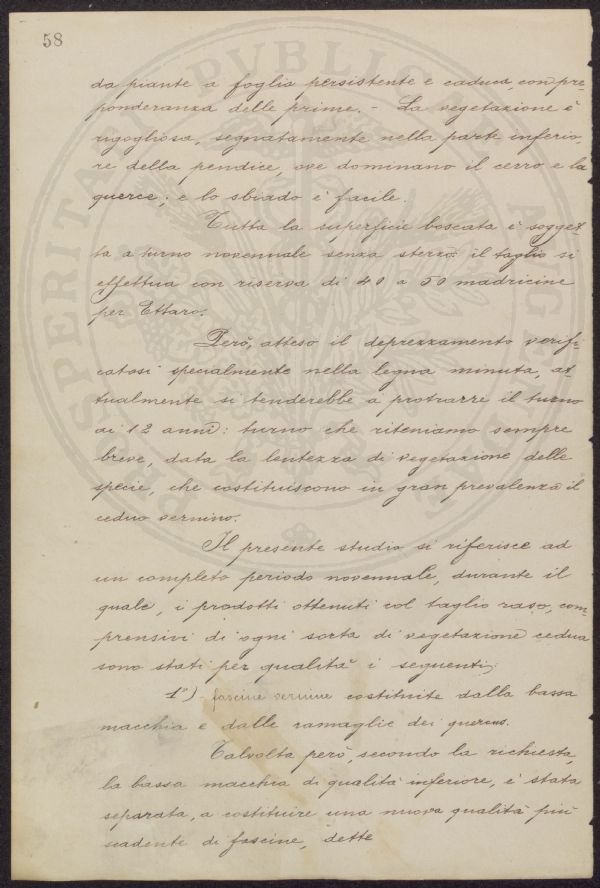 58
da piante a foglia persistente e caduca, con pre-
ponderanza delle prime. - La vegetazione è
rigogliosa, segnatamente nella parte inferio-
re della pendice, ove dominano il cerro e la
querce; e lo sbiado è facile.
Tutta la superficie boscata è sogget-
ta a turno novennale senza sterzo: il taglio si
effettua con riserva di 40 a 50 madricine
per Ettaro.
Però, atteso il deprezzamento verifi-
catosi specialmente nella legna minuta, at-
tualmente si tenderebbe a protrarre il turno
ai 12 anni: turno che riteniamo sempre
breve, data la lentezza di vegetazione delle
specie, che costituiscono in gran prevalenza il
ceduo vernino.
Il presente studio si riferisce ad
un completo periodo novennale, durante il
quale, i prodotti ottenuti col taglio raso, com-
prensivi di ogni sorta di vegetazione cedua
sono stati per qualità i seguenti;
1º) fascine vernine costituite dalla bassa
macchia e dalle ramaglie dei quercus.
Talvolta però, secondo la richiesta,
la bassa macchia di qualità inferiore, è stata
separata, a costituire una nuova qualità più
scadente di fascine, dette
PVBLICA
SPERITA